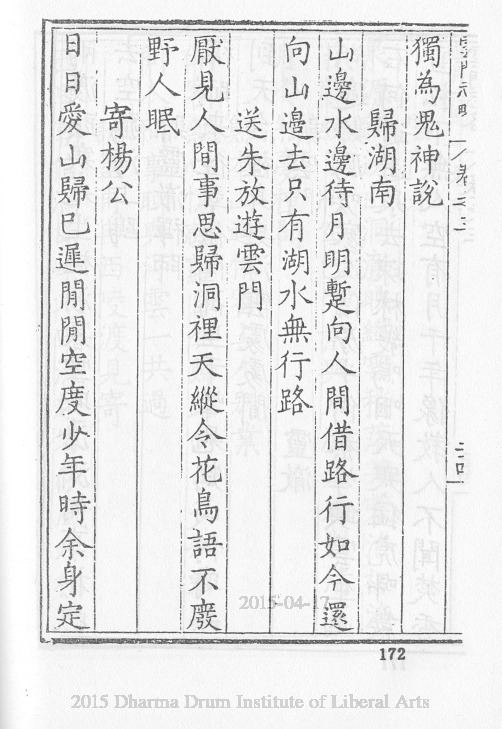 獨為鬼神說
歸湖南
山邊水邊待月明蹔向人間借路行如今還
向山邉去只有湖水無行路
送朱放遊雲門
厭見人間事思歸洞裡天縱令花鳥語不廢
野人眠
寄楊公
日日愛山歸已遲閒閒空度少年時余身定
172
2015-04-17
2015 Dharma Drum Institute of Liberal Arts